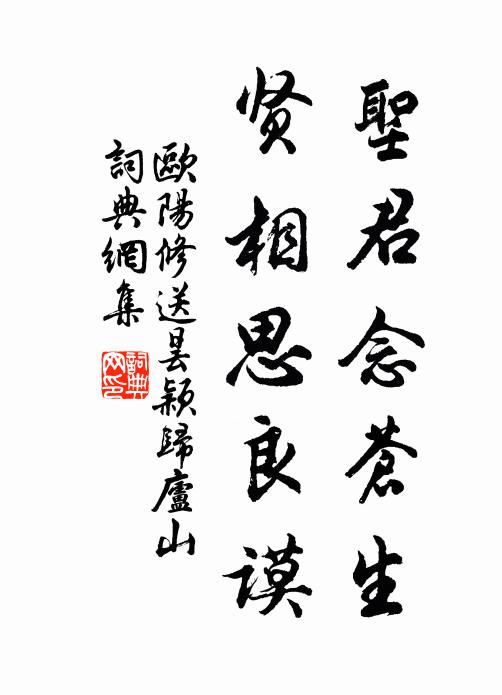 聖君念蒼生
贤相思良谟
歐陽修送昙颖歸廬山
詞典網集
詞典网印